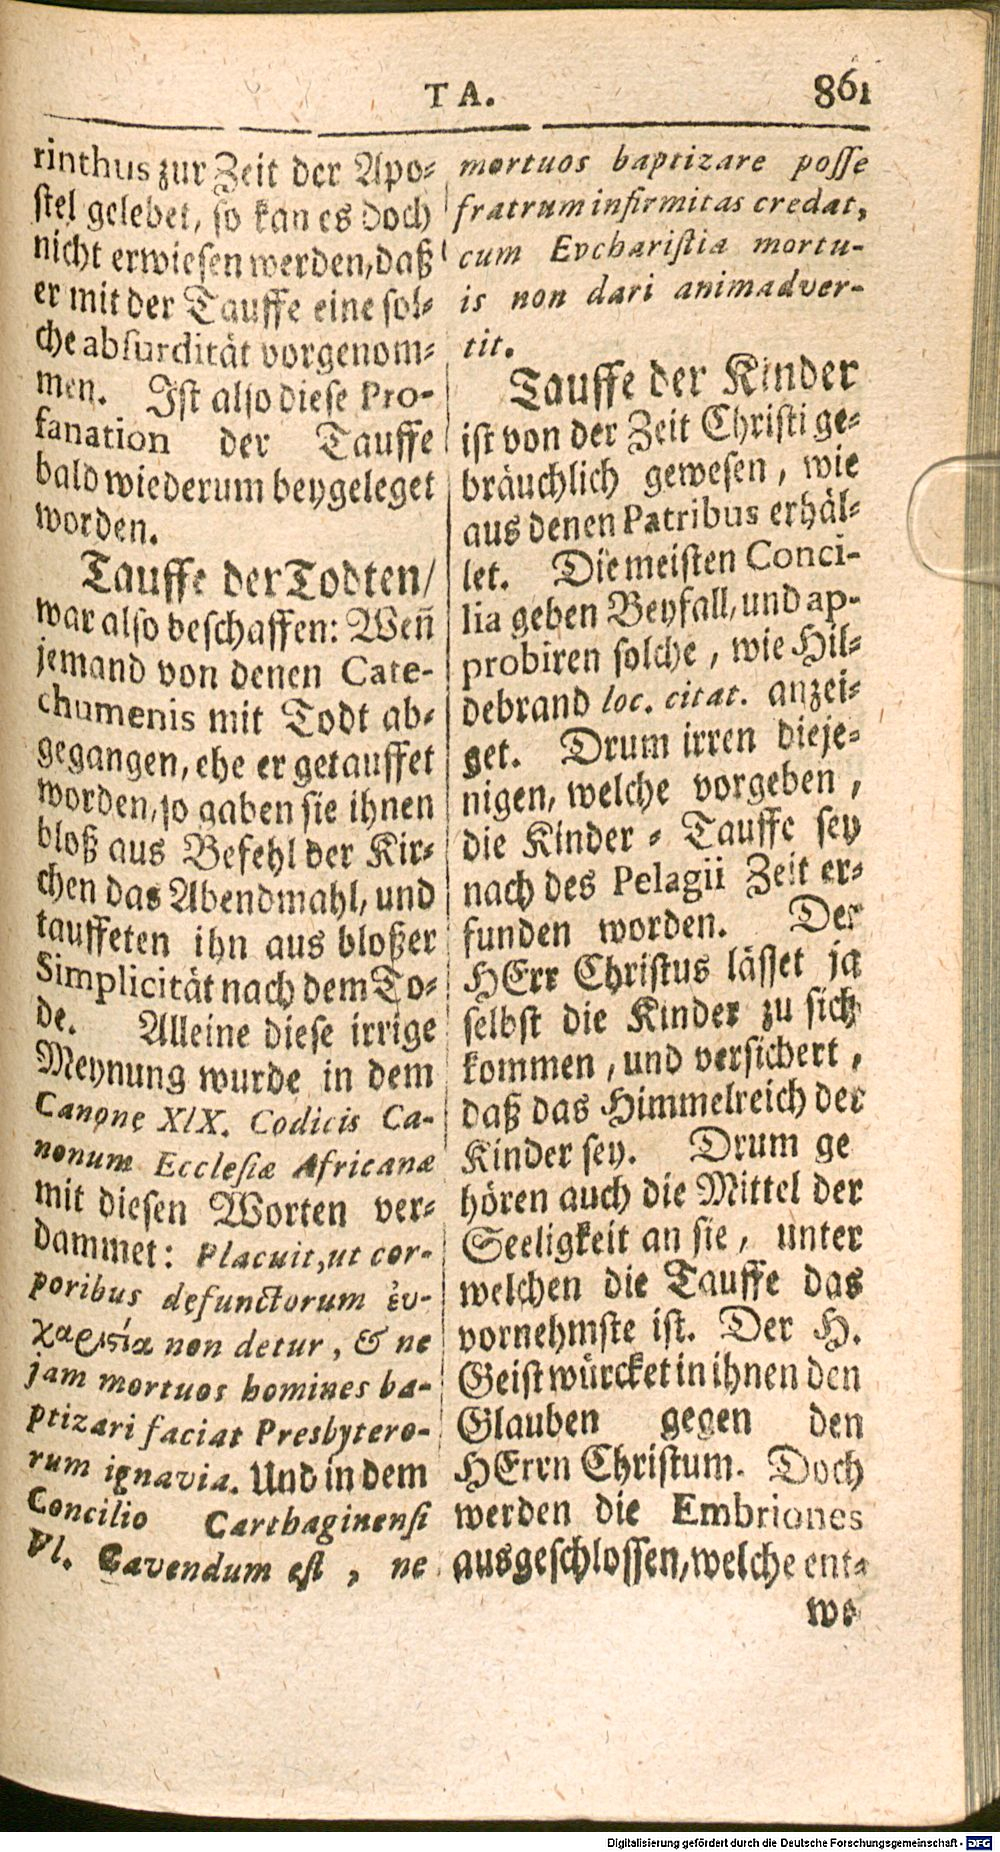 TA. 861
rinthus zur Zeit der Apo-
stel gelebet, so kan es doch
nicht erwiesen werden, daß
er mit der Tauffe eine sol-
che absurdität vorgenom-
men. Ist also diese Pro-
fanation der Tauffe
bald wiederum beygeleget
worden.
Tauffe der Todten/
war also beschaffen: Weñ
jemand von denen Cate-
chumenis mit Todt ab-
gegangen, ehe er getauffet
worden, so gaben sie ihnen
bloß aus Befehl der Kir-
chen das Abendmahl, und
tauffeten ihn aus bloßer
Simplicität nach dem To-
de. Alleine diese irrige
Meynung wurde in dem
Canone XIX. Codicis Ca-
nonum Ecclesiæ Africanæ
mit diesen Worten ver-
dammet: Placuit, ut cor-
poribus defunctorum ἐυ-
χαριστία non detur, & ne
jam mortuos homines ba-
ptizari faciat Presbytero-
rum ignavia. Und in dem
Concilio Carthaginensi
VI. Cavendum est, ne
mortuos baptizare posse
fratrum infirmitas credat,
cum Evcharistia mortu-
is non dari animadver-
tit.
Tauffe der Kinder
ist von der Zeit Christi ge-
bräuchlich gewesen, wie
aus denen Patribus erhäl-
let. Die meisten Conci-
lia geben Beyfall, und ap-
probiren solche, wie Hil-
debrand loc. citat. anzei-
get. Drum irren dieje-
nigen, welche vorgeben,
die Kinder-Tauffe sey
nach des Pelagii Zeit er-
funden worden. Der
HErr Christus lässet ja
selbst die Kinder zu sich
kommen, und versichert,
daß das Himmelreich der
Kinder sey. Drum ge
hören auch die Mittel der
Seeligkeit an sie, unter
welchen die Tauffe das
vornehmste ist. Der H.
Geist würcket in ihnen den
Glauben gegen den
HErrn Christum. Doch
werden die Embriones
ausgeschlossen, welche ent-
we
Digitalisierung gefördert durch die Deutsche Forschungsgemeinschaft - DFG